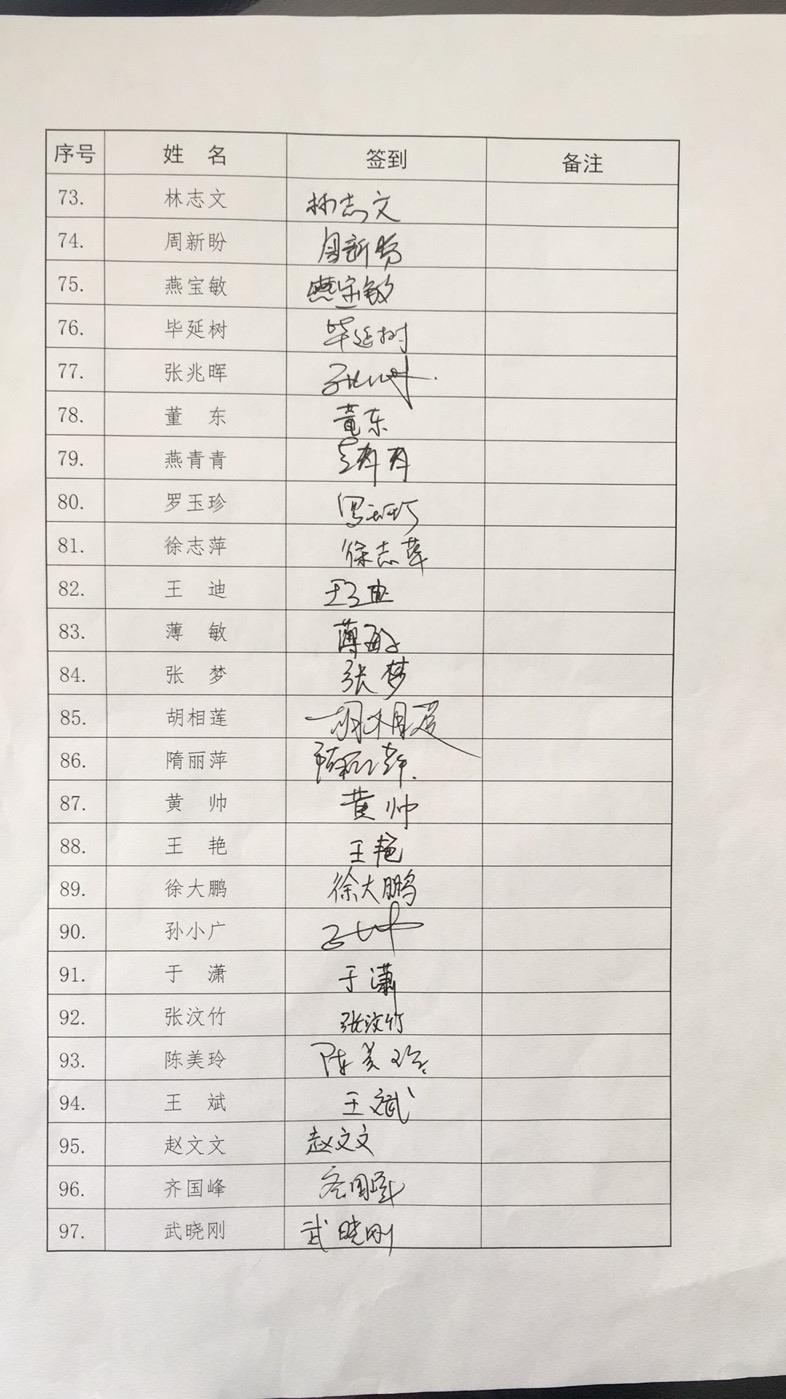 序号 姓 名 签到 备注
73. 林志文 林志文
74. 周新盼 周新盼
75. 燕宝敏 燕宝敏
76. 毕延树 毕延树
77. 张兆晖
78. 董 东 董东
79. 燕青青
80. 罗玉珍 罗玉珍
81. 徐志萍 徐志萍
82. 王 迪 王迪
83. 薄 敏 薄敏
84. 张 梦 张梦
85. 胡相莲 胡相莲
86. 隋丽萍 隋丽萍
87. 黄 帅 黄帅
88. 王 艳 王艳
89. 徐大鹏 徐大鹏
90. 孙小广
91. 于 潇 于潇
92. 张汶竹 张汶竹
93. 陈美玲 陈美玲
94. 王 斌 王斌
95. 赵文文 赵文文
96. 齐国峰 齐国峰
97. 武晓刚 武晓刚